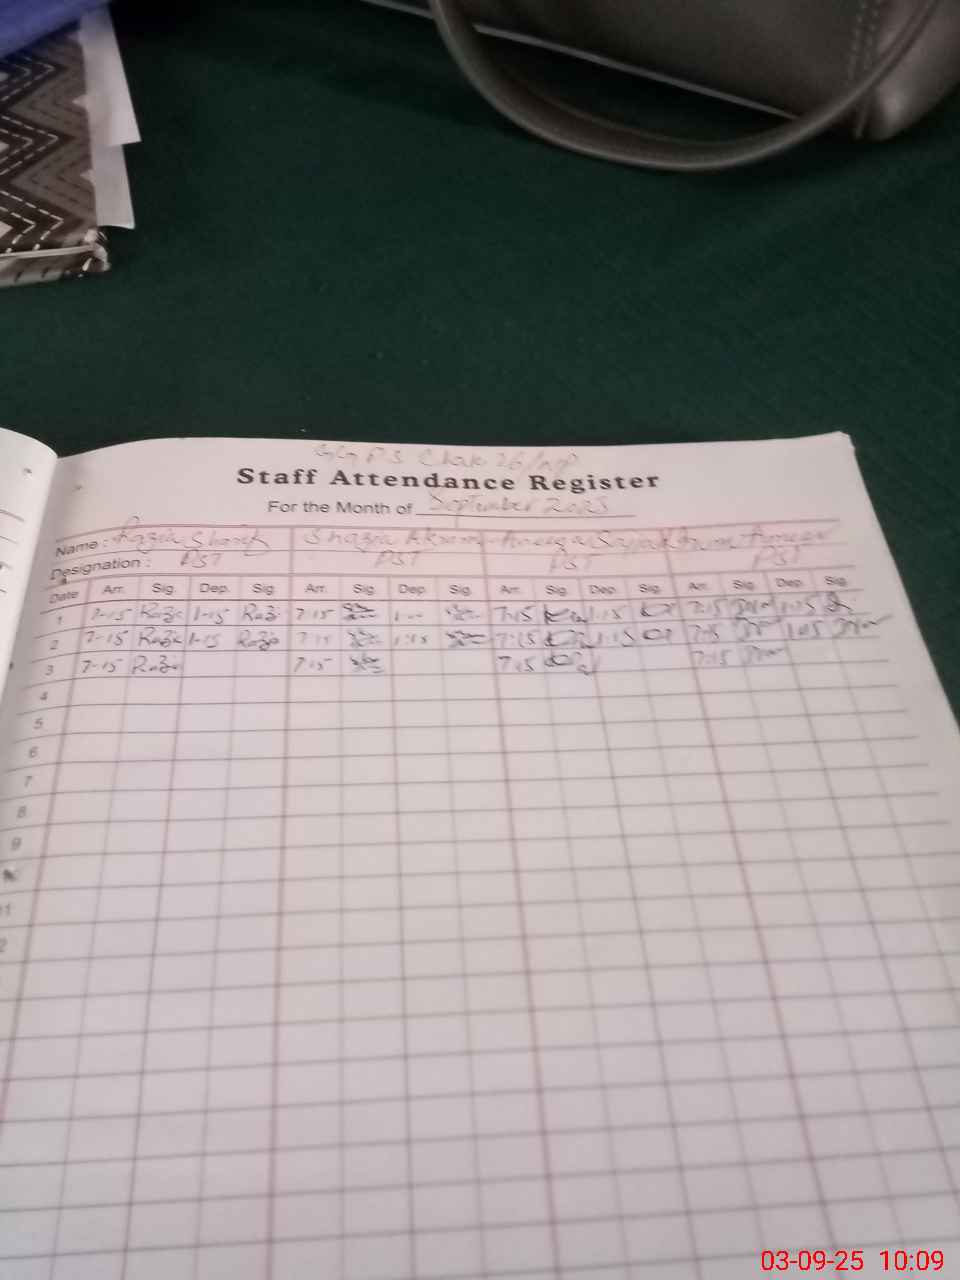 GGPS Chak 26/np
Staff Attendance Register
For the Month of September 2025
Name : Razia Sharif Shazia Akram Sajjad Anum Ameer
Designation : PST PST PST PST
Date Arr. Sig. Dep. Sig. Arr. Sig. Dep. Sig. Arr. Sig. Dep. Sig. Arr. Sig. Dep. Sig.
1 7-15 Razi 1-15 Razi 7:15 7:15 1:15 7:15 1:15
2 7-15 Razi 1-15 Razia 7:15 1:15 7:15 1:15 7:15 1:15
3 7-15 Razia 7:15 7:15 7:15
4
5
6
7
8
9
11
2
03-09-25 10:09